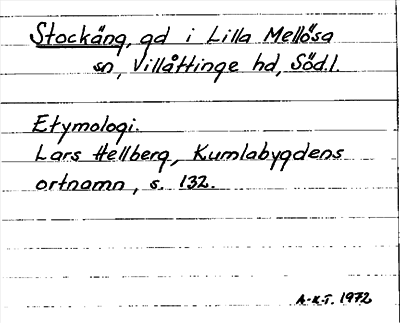 Stockäng, gd i Lilla Mellösa
sn, Villåttinge hd, Söd.l.
Etymologi.
Lars Hellberg, Kumlabygdens
ortnamn, s. 132.
A-K.T. 1972